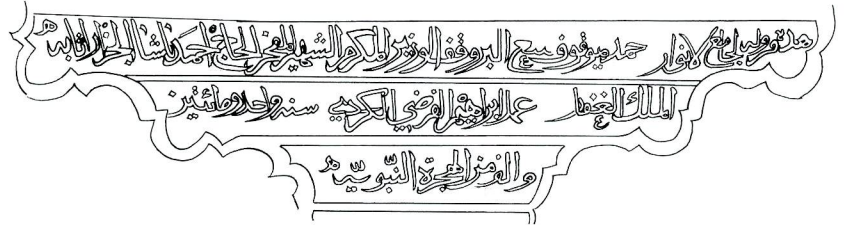 هذه مزوله لجامع الانوار وقف الوزير المكرم الشهير المفخر الحاج احمد باشا الجزار اثابه
الملك الغفار عمل ابراهيم الفرضي الكردي سنة واحد ومائتين
والف من الهجرة النبويه